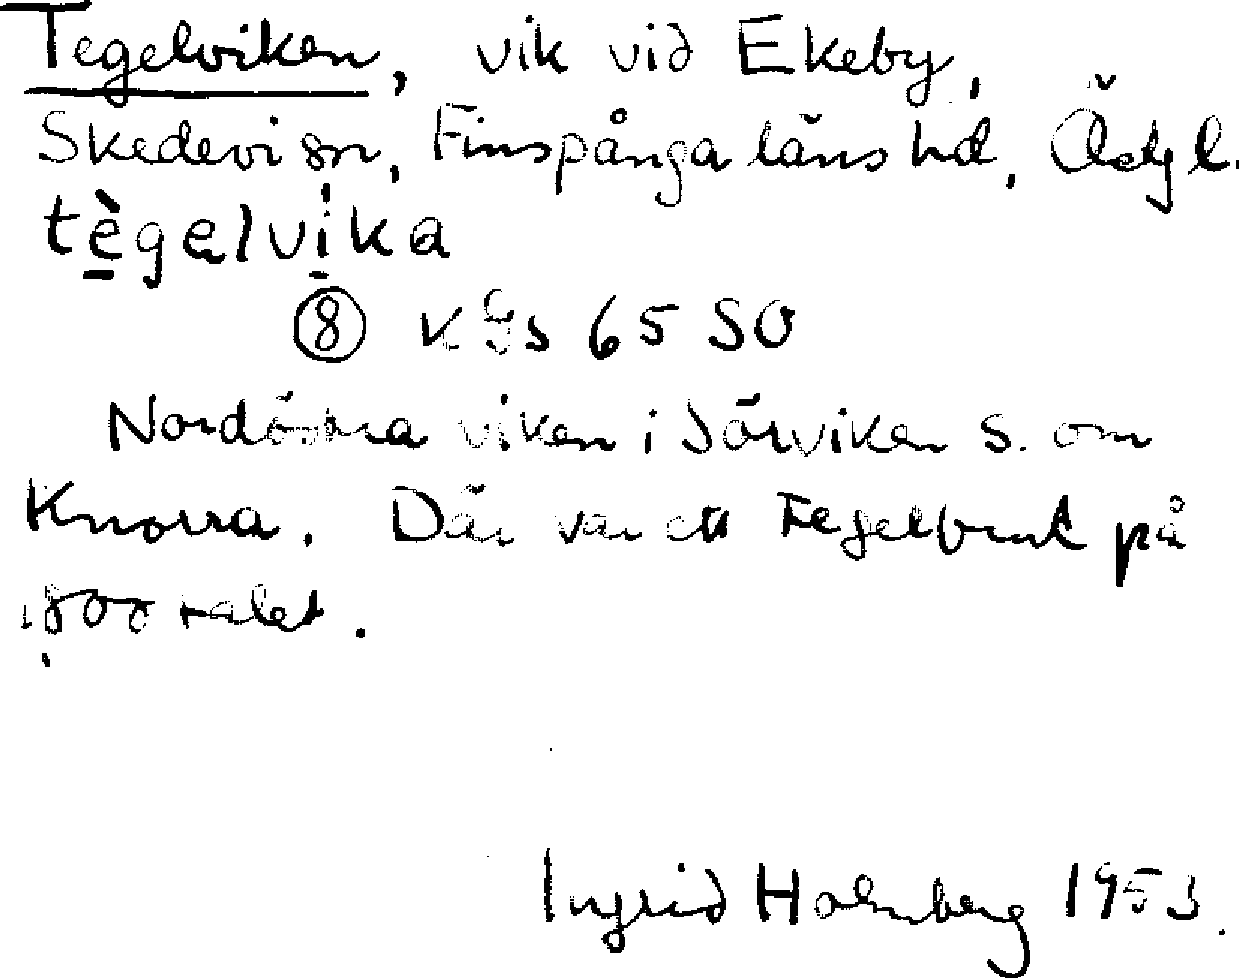 Tegelviken, vik vid Ekeby,
Skedevi sn, Finspånga läns hd, Östgl.
tègelvika
⑧ k Gs 65 SO
Nordöstra viken i Sörviken s. om
Knorra. Där var ett Tegelbruk på
1800 talet.
Ingrid Holmberg 1953.